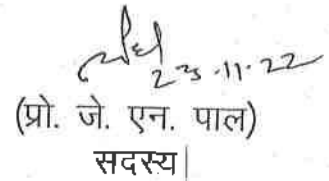 23.11.22
(प्रो. जे. एन. पाल)
सदस्य|